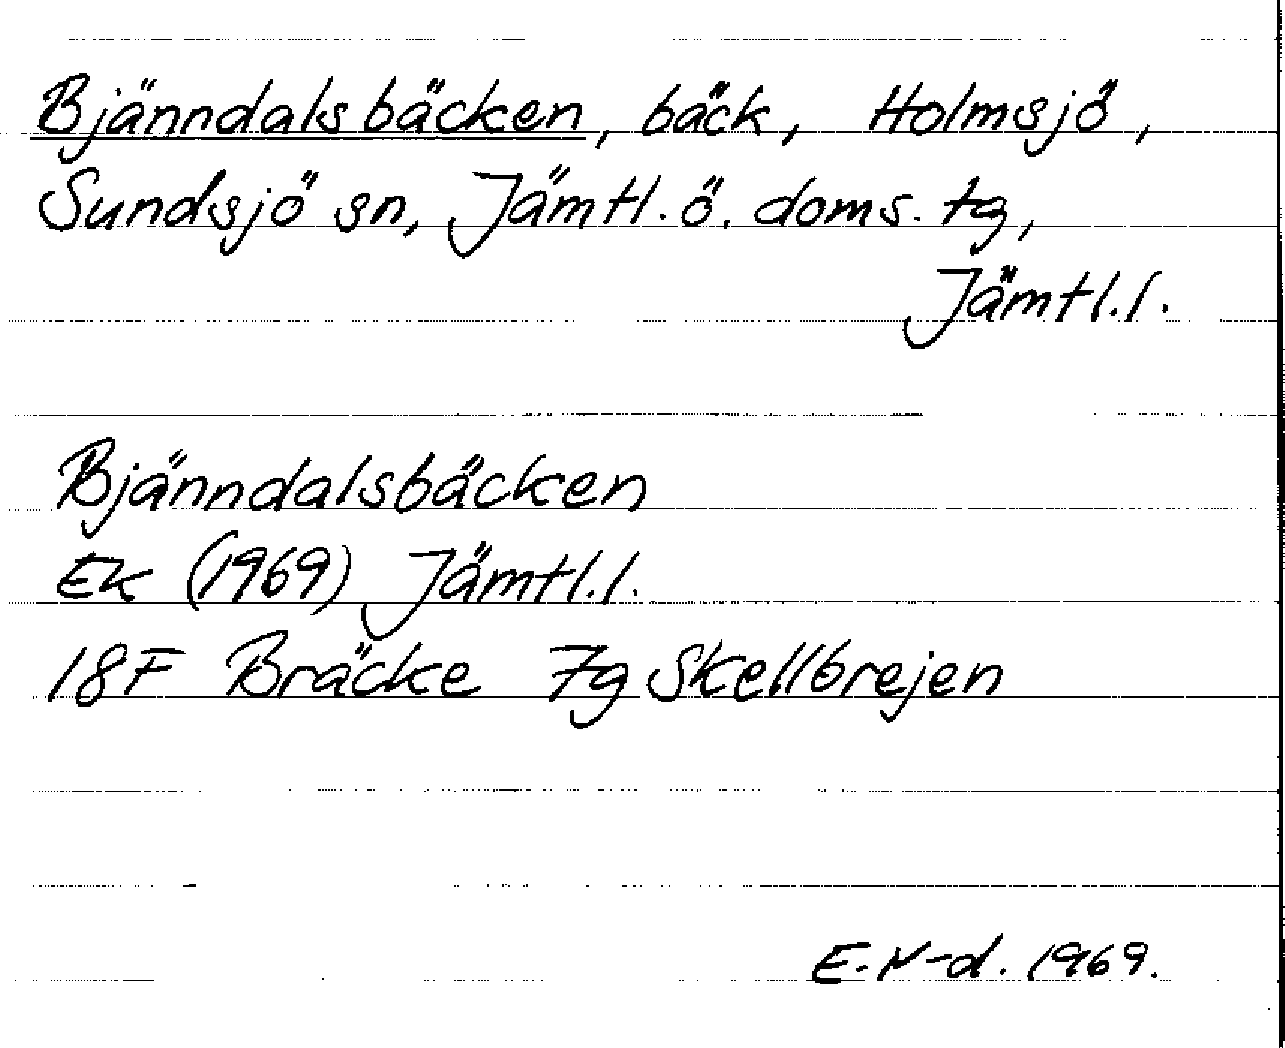 Bjänndalsbäcken, bäck, Holmsjö,
Sundsjö sn, Jämtl. ö. doms. tg,
Jämtl.l.
Bjänndalsbäcken
Ek (1969) Jämtl.l.
18F Bräcke 7g Skellbrejen
E.N-d. 1969.